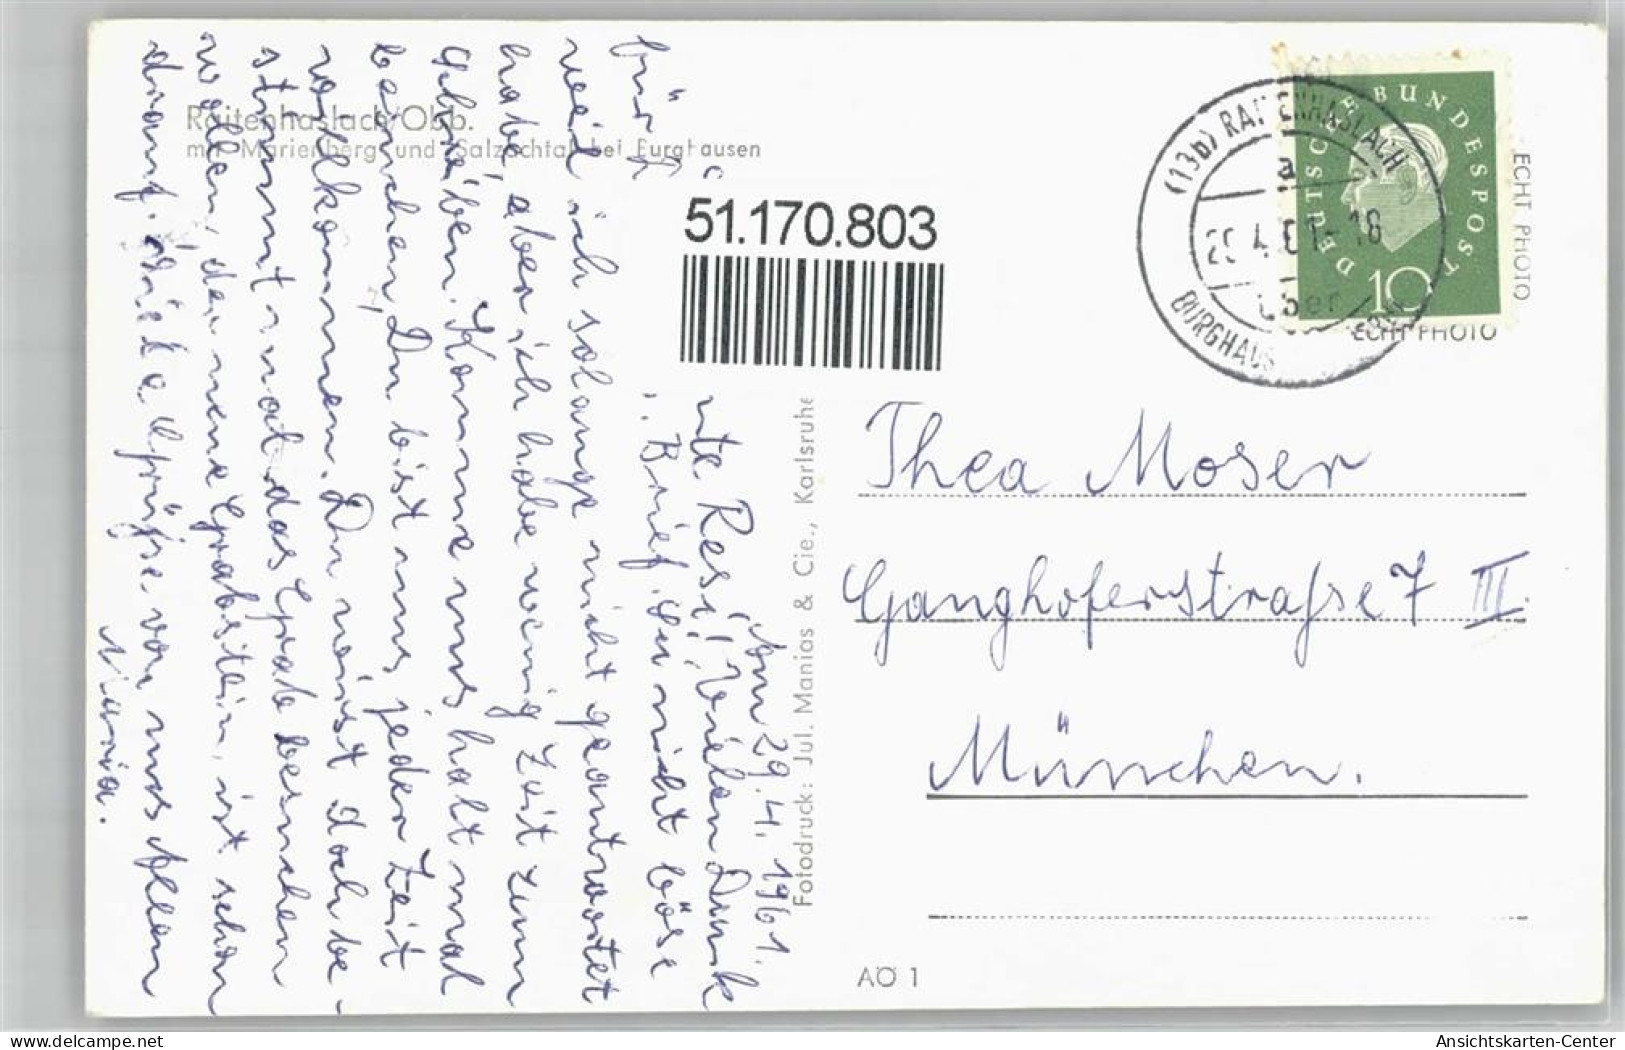 Raitenhaslach/Obb.
mit Marienberg und Salzachtal bei Burghausen
51.170.803
Am 29.4.1961.
Resi! Vielen Dank
für Brief. Sei nicht böse
weil ich solange nicht geantwortet
habe, aber ich habe wenig Zeit zum
schreiben. Komme uns halt mal
besuchen, Du bist uns jeder Zeit
vollkommen. Du wirst doch be-
stimmt mal das Grab besuchen
wollen, der neue Grabstein, ist schon
drauf. Viele Grüße von uns Allen
Maria.
Fotodruck: Jul. Manias & Cie., Karlsruhe
DEUTSCHE BUNDESPOST
10
(13b) RAITENHASLACH
a
29.4.61-18
über
BURGHAUSEN
ECHT PHOTO
ECHT PHOTO
Thea Moser
Ganghoferstraße 7 III.
München.
AÖ 1
Ansichtskarten-Center